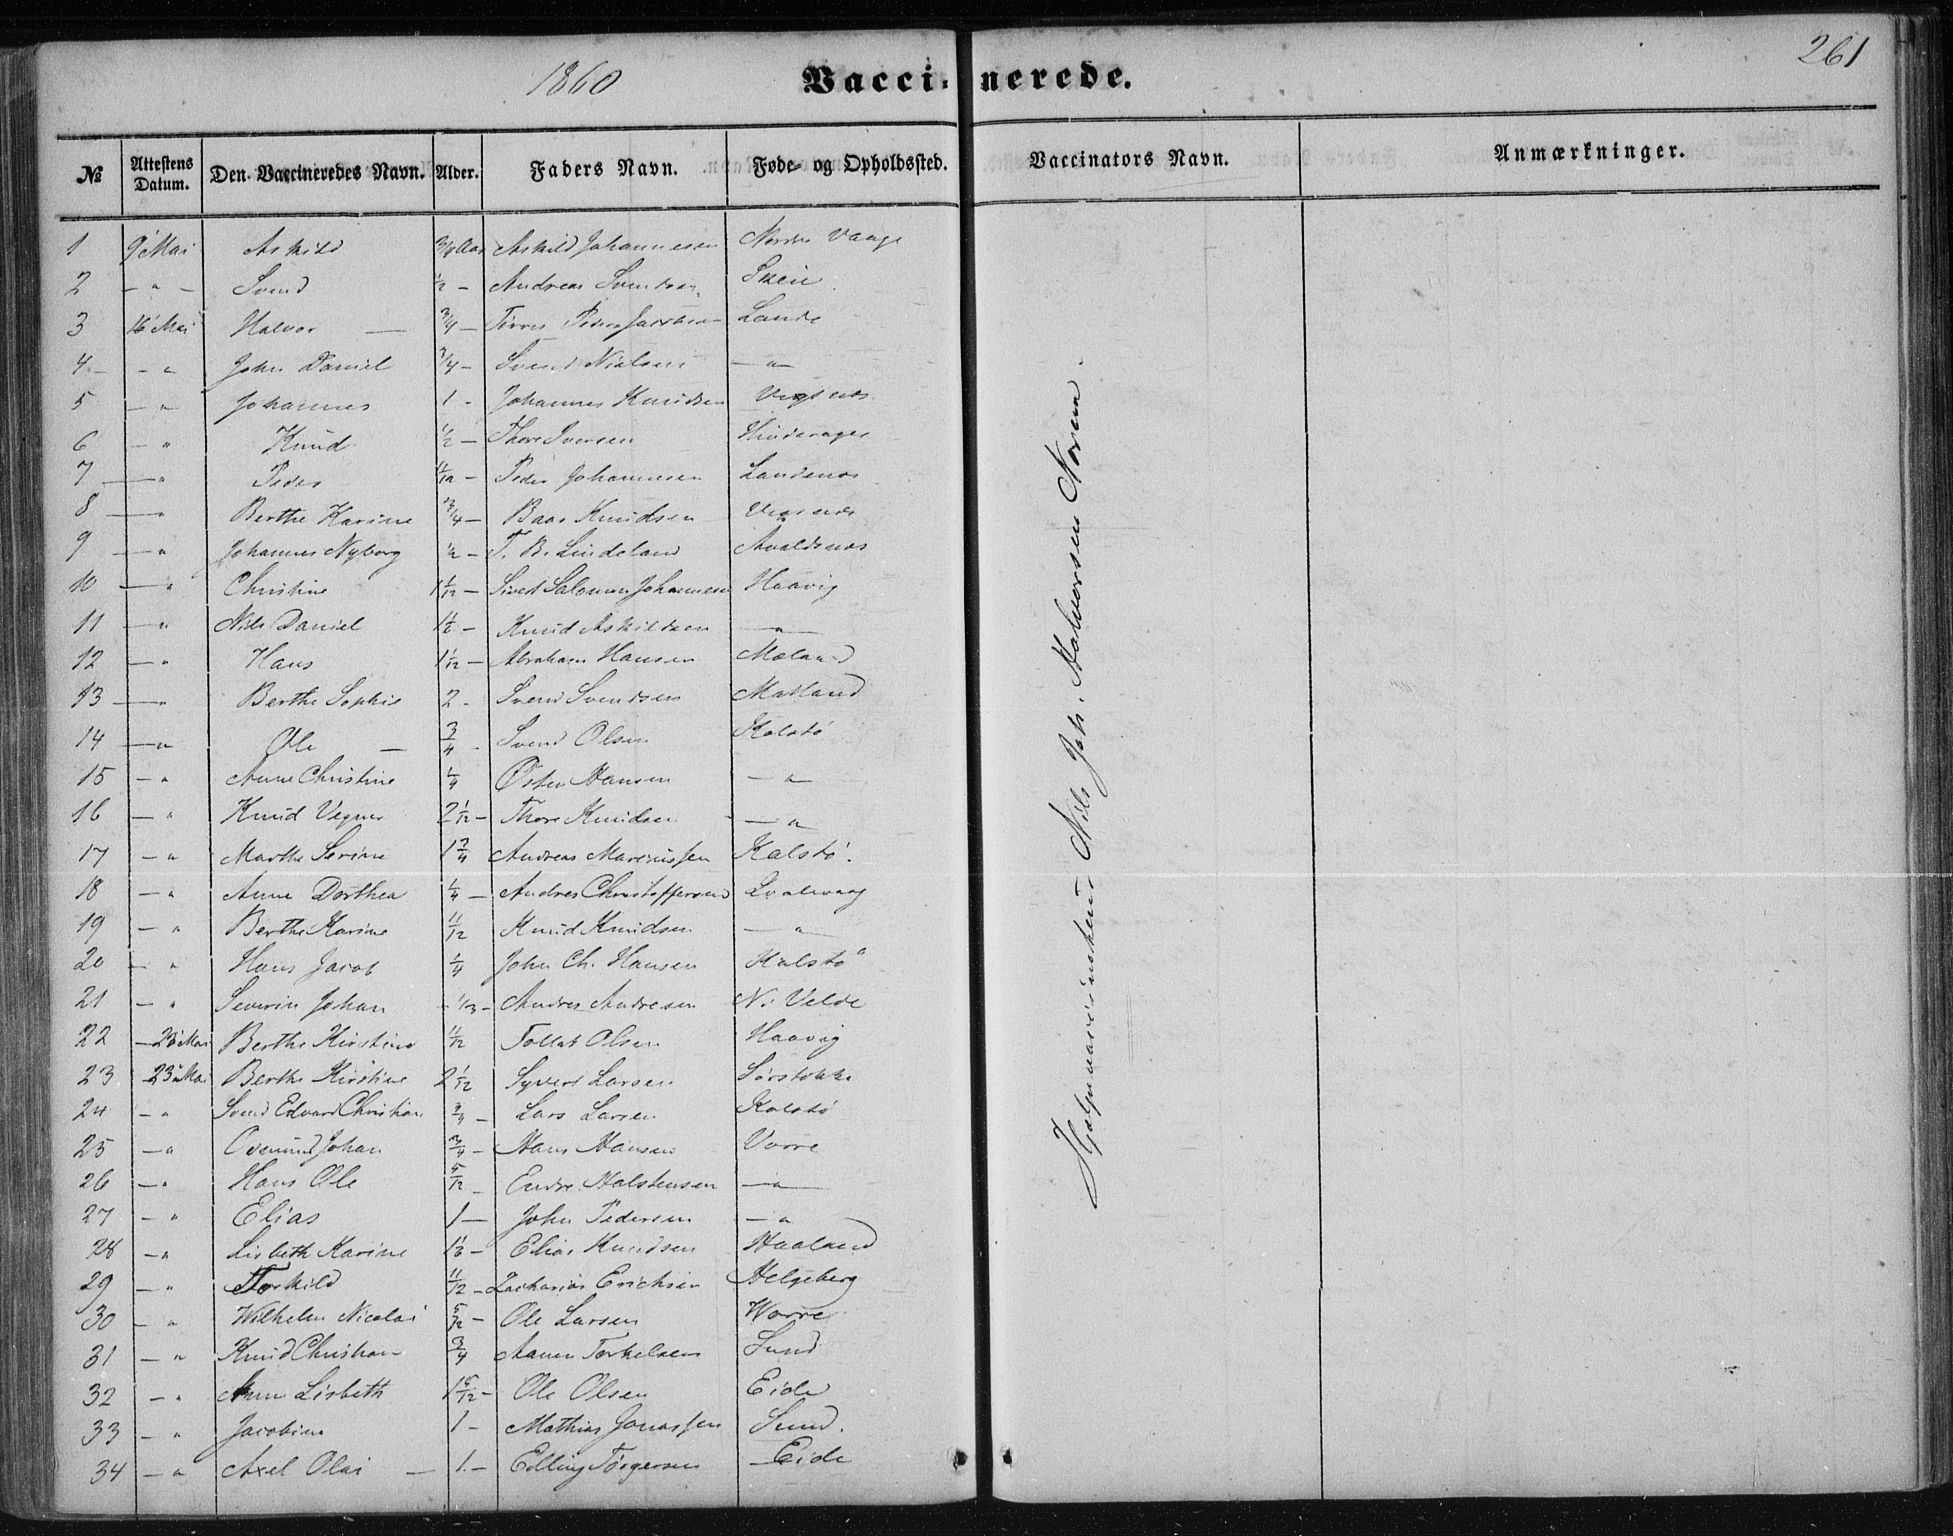 1860 Vaccinerede. 261
№ Attestens Datum. Den Vaccineredes Navn. Alder. Faders Navn. Føde- og Opholdssted. Vaccinators Navn. Anmærkninger.
1 9 Mai Askild 3/4 Aar Askild Johannesen Nordre Vaage
2 — " — Svend 1/2 — Andreas Svendsen
3 16 Mai Halvor — 3/4 — Peder Jacobsen Lande
4 — — " John Daniel 3/4 — Svend Nielsen — " —
5 — " Johannes 1 - Johannes Knudsen
6 — " Knud 1/2 — Thore Iversen
7 — " Peder 11/12 — Peder Johannesen Landenæs
8 — " Berthe Karine 3/4 — Baar Knudsen
9 — " Johannes Nyborg 1/2 — T. B. Lindeland Avaldsnæs
10 — " Christine 1 1/12 — Sivert Salomon Johannesen Haavig
11 — " Nils Daniel 1 1/2 — Knud Askildsen — " —
12 — " Hans 1 1/12 — Abraham Hansen Mæland
13 — " Berthe Sophie 2 - Svend Svendsen Matland
14 — " Ole — 3/4 - Svend Olsen Kalstø
15 — " Anne Christine 1/4 Østen Hansen — " —
16 — " Knud Vegner 2 1/12 — Thore Knudsen — " —
17 — " Marthe Serine 1 3/4 Andreas Marcussen Kalstø.
18 — " Anne Dorthea 1/4 — Andres Christoffersen Qvalevaag
19 — " Berthe Karine 11/12 Knud Knudsen — " —
20 — " Hans Jacob 1/4 John Ch. Hansen Kalstø
21 — " Severin Johan - 1/3 - Andres Andresen N. Velde
22 — Mai Berthe Kirstine 11/12 Tollak Olsen Haavig
23 23 Mai Berthe Kirstine 2 1/12 Syvert Larsen Sørstokke
24 — " Svend Edvard Christian 3/4 — Lars Larsen Kalstø
25 — " Johan 3/4 — Hans Hansen Vorre
26 — " Hans Ole 5/12 — Endre Halstensen — " —
27 — " Elias 1 — John Pedersen — "
28 — " Lisbeth Karine 1 1/3 - Elias Knudsen Haaland
29 — " Torkild 11/12 — Zacharias Erichsen Helgeberg
30 — " Wilhelm Nicolai 5/12 — Ole Larsen Worre
31 — " Knud Christian 3/4 Aanen Torkelsen Sund
32 — " Anne Lisbeth 1 5/12 - Ole Olsen Eide
33 — " Jacobine 1 - Mathias Jonassen Sund.
34 — " Axel Olai — 1. — Elling Torgersen Eide
Hjælpevaccinateur Nils Joh. Halvorsen Norem.